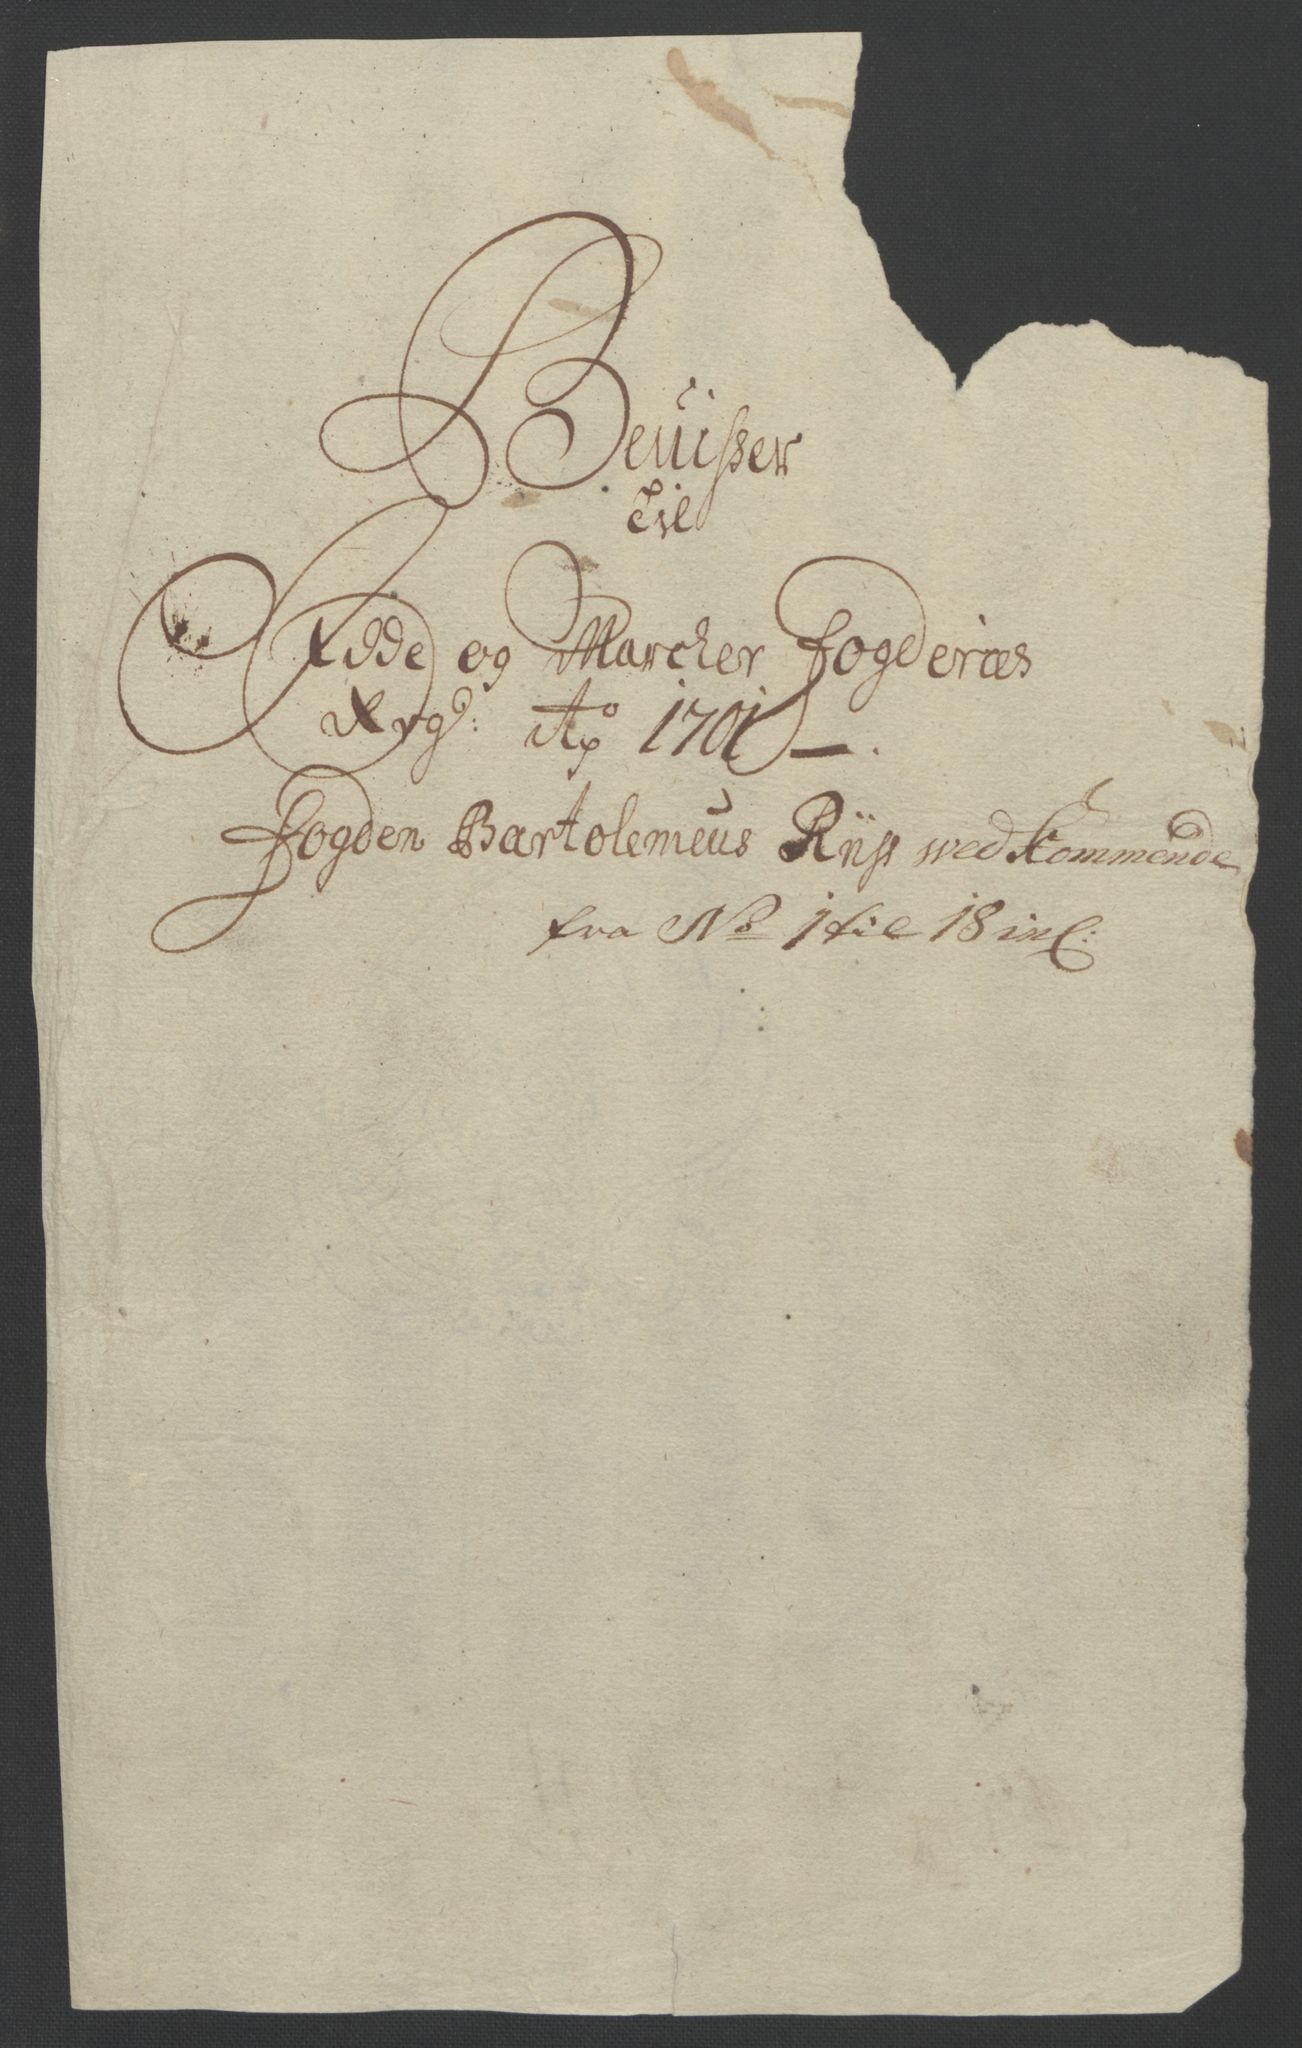 Beviisser
Til
Idde og Marcker fogderies
Rexgs: Ao 1701 —.
fogden Bartolemeus Riisz wedkommende
fra No 1 til 18 incl: